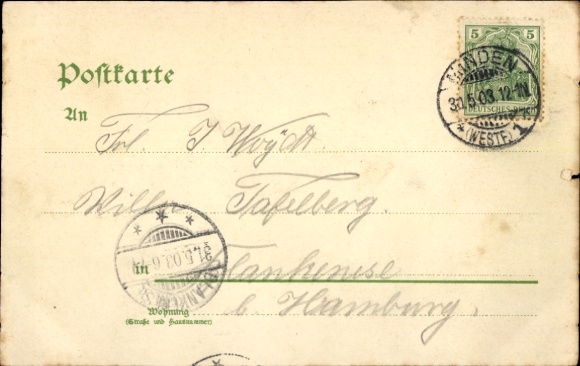 5 5
DEUTSCHES REICH
MINDEN
30.5.03.12-1N
* (WESTF.) 1
Postkarte
An
Frl. J Woydt.
Villa Tafelberg.
31.5.03.
BLANKENESE
in Blankenese
Wohnung
(Straße und Hausnummer)
b. Hamburg.